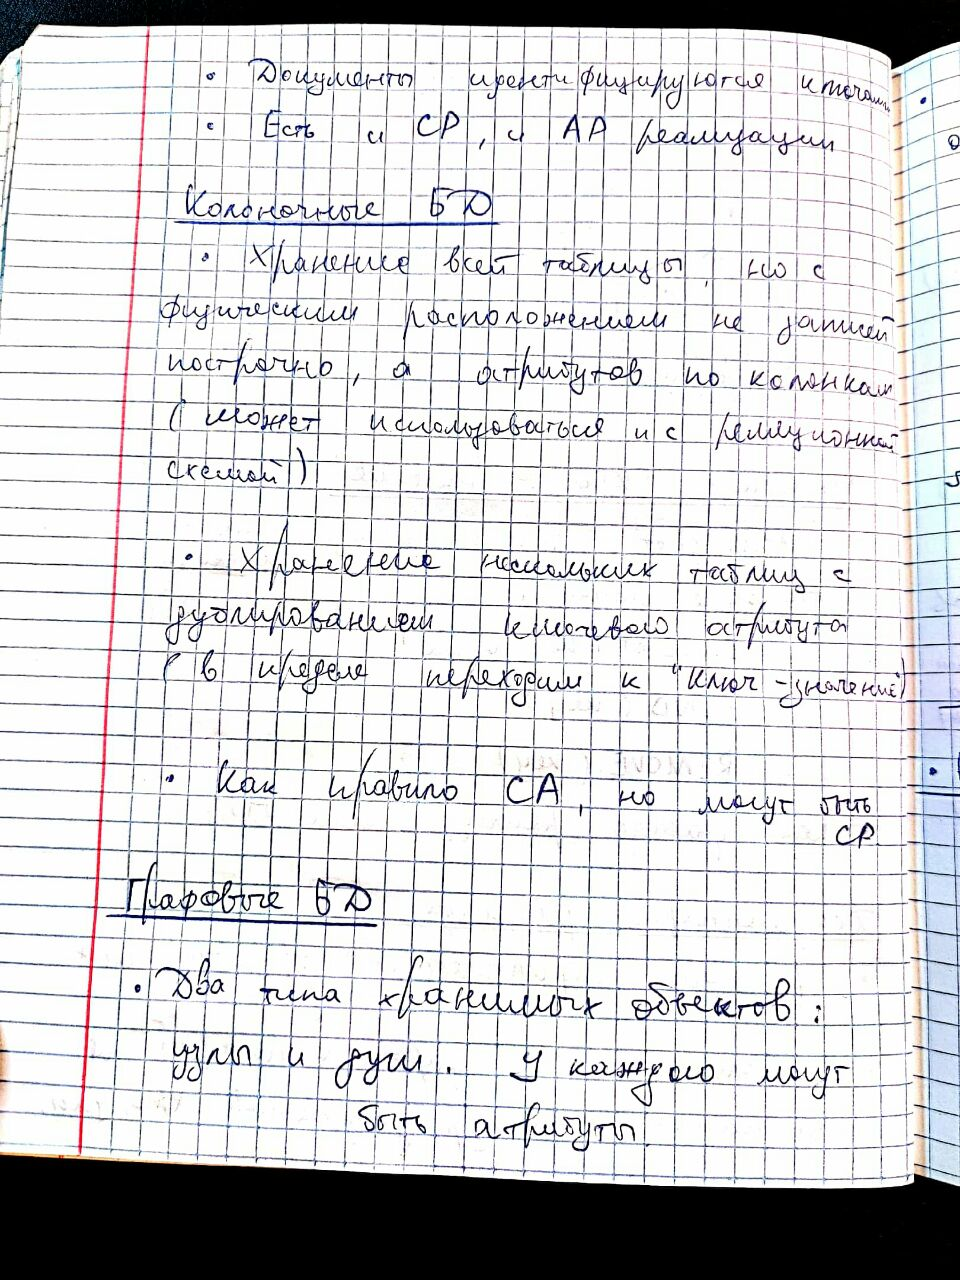 • Документы идентифицируются ключами
• Есть и CP, и AP реализации
Колоночные БД
• Хранение всей таблицы, но с
физическим расположением не записей
построчно, а атрибутов по колонкам
(может использоваться и с реляционной
схемой)
• Хранение нескольких таблиц с
дублированием ключевого атрибута
(в пределе переходим к "ключ-значение")
• Как правило CA, но могут быть
CP
Графовые БД
• Два типа хранимых объектов:
узлы и дуги. У каждого могут
быть атрибуты